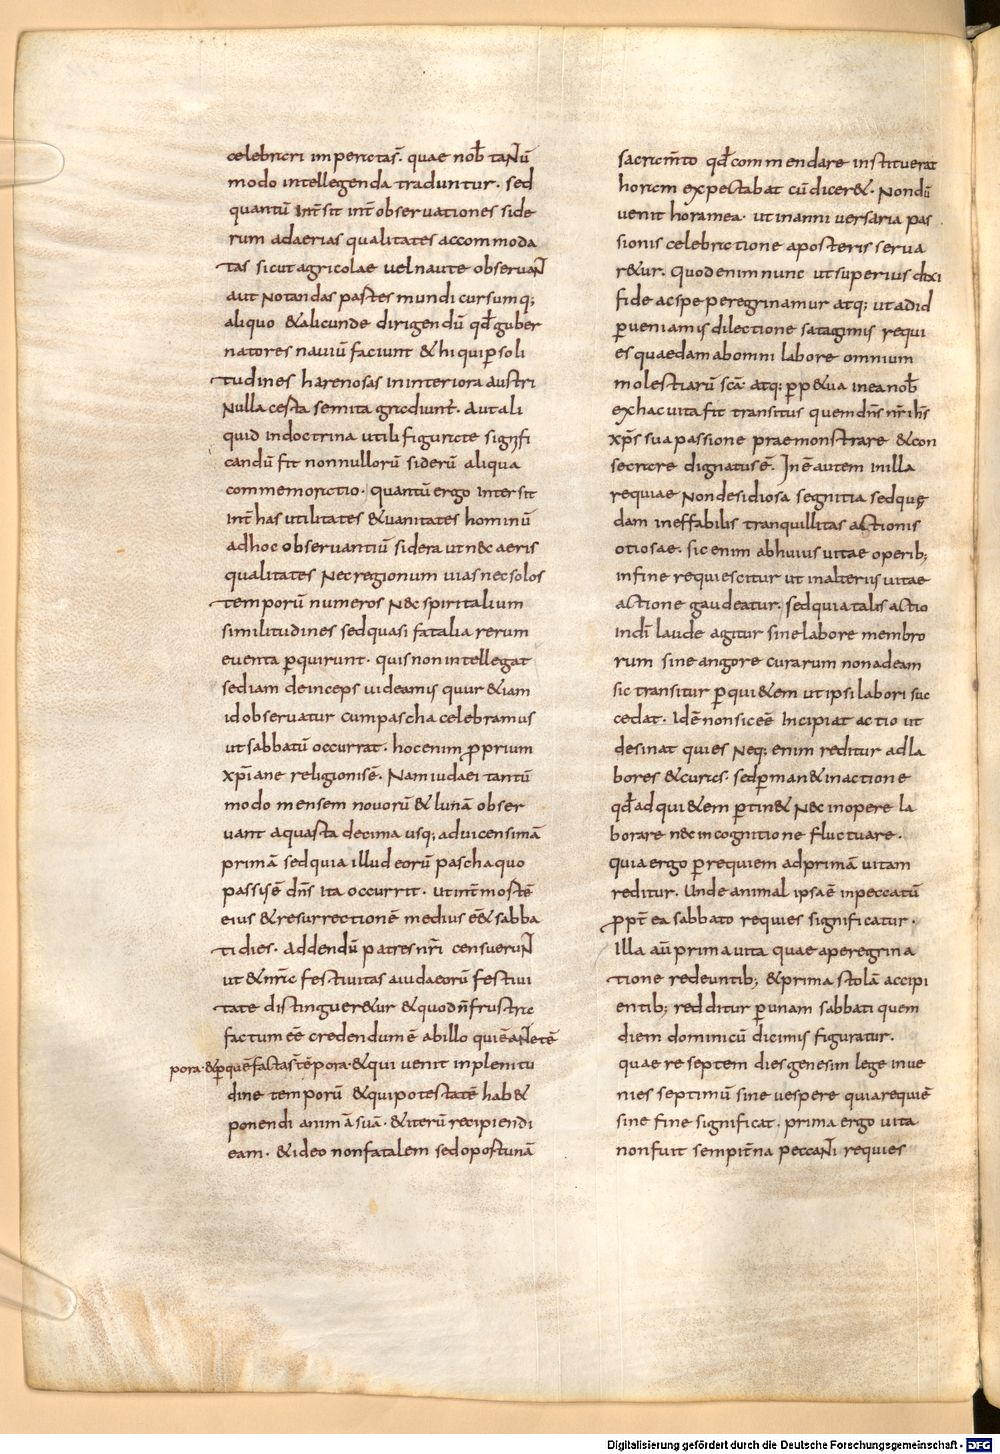 celebrari imperitas. quae nob̅ taNtū
modo intellegenda traduntur. sed
quantū int̄sit int̄ observationes side
rum adaerias qualitates accommoda
tas sicut agricolae vel nautae observaNt
aut Notandas partes mundi cursumq;
aliquo &alicunde dirigendū qd̄ guber
natores naviū faciunt & hi qui p̱ soli
tudines harenosas in interiora austri
Nulla certa semita gradiunt̄. Aut ali
quid in doctrina utili figurate signifi
candū fit nonnullorū siderū aliqua
commemoratio. quantū ergo intersit
int̄ has utilitates &vanitates hominū
adhoc observantiū sidera ut nec aeris
qualitates Nec regionum vias nec solos
temporū numeros Nec spiritalium
similitudines sed quasi fatalia rerum
eventa p̱quirunt. quis non intellegat
sed iam deinceps videamus quur &iam
id observatur cum pascha celebramus
ut sabbatū occurrat. hoc enim p̱prium
xp̄iane religionis ē. Nam iudaei tantū
modo mensem novorū & lunā obser
vant a quarta decima usq; ad vicensimā
primā sed quia illud eorū pascha quo
passus ē dn̄s ita occurrit. ut int̄ mortē
eius &resurrectionē medius ēē& sabba
ti dies. addendū patres nr̄i censueruNt
ut &nr̄a festivitas a iudaeorū festivi
tate distingueretur &quod n̄ frustra
factum ēē credendum ē ab illo qui ē aNte tē
pora. &p̱ quē facta s̄t tēpora. &qui venit in plenitu
dine temporū &qui potestatē hab&
ponendi animā suā. &iterū recipiendi
eam. &ideo non fatalem sed oportunā
sacram̄to qd̄ commendare instituerat
horam expectabat cū dicer&. Nondū
venit hora mea. ut in anniversaria pas
sionis celebratione a posteris serva
r&ur. Quod enim nunc ut superius dixi
fide ac spe peregrinamur atq; ut ad id
p̱veniamus dilectione satagimus requi
es quaedam ab omni labore omnium
molestiarū sc̄a atq; p̱p&ua in ea nob̅
ex hac vita fit transitus quem dn̄s nr̄ ih̄s
xp̄s sua passione praemonstrare &con
secrare dignatus ē. In ē autem in illa
requiae Non desidiosa segnitia sed quę
dam ineffabilis tranquillitas actionis
otiosae. sic enim ab huius vitae operib;
in fine requiescitur ut in alterius vitae
actione gaudeatur. sed quia talis actio
in dī laude agitur sine labore membro
rum sine angore curarum non ad eam
sic transitur p̱ qui&em ut ipsi labori suc
cedat. Id ē non sic eē Incipiat actio ut
desinat quies Neq; enim reditur ad la
bores &curas. sed p̱man& in actione
qd̄ ad qui&em p̱tin& Nec in opere la
borare nec in cognitione fluctuare.
quia ergo p̱ requiem ad primā vitam
reditur. Unde anima lipsa ē in peccatū
p̱pt̄ ea sabbato requies significatur.
Illa aū prima vita quae a peregrina
tione redeuntib; &prima stolā accipi
entib; redditur p̱ unam sabbati quem
diem dominicū dicimus figuratur.
quaere septem dies genesim lege inve
nies septimū sine vespere quia requiē
sine fine significat. prima ergo vita
non fuit sempit̄na peccaNti requies
Digitalisierung gefördert durch die Deutsche Forschungsgemeinschaft - DFG